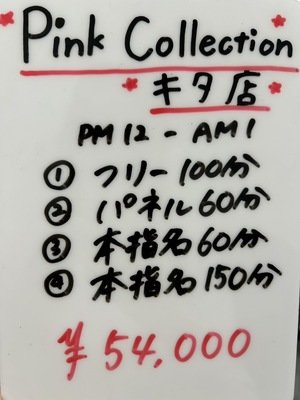 Pink Collection
キタ店
PM12-AM1
① フリー100分
② パネル60分
③ 本指名60分
④ 本指名150分
¥54,000